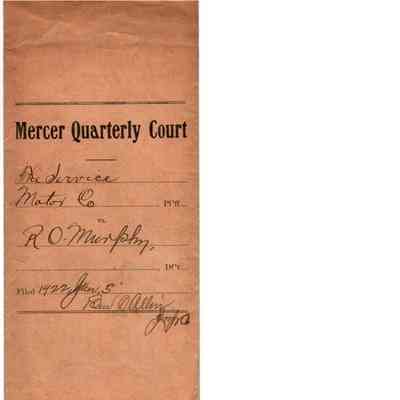 Mercer Quarterly Court
The Service
Motor Co Pl'ff.
vs.
R O. Murphy,
Df't.
Filed 1922 Jan, 5
Ben Allin